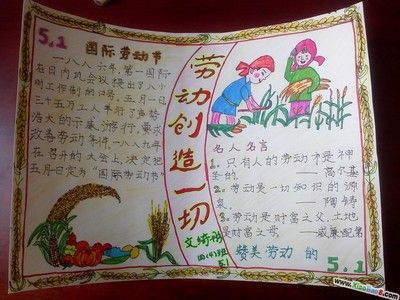 5.1
国际劳动节
一八八六年,第一国际
在日内瓦会议提出了八小
时工作制的口号,五月一日
三十五万工人举行了声势
浩大的示威游行,要求
改善劳动条件,一八八九年
在召开的大会上,决定把
五月一日定为"国际劳动节"
劳动创造一切
文绮彤
四(4)班
名人名言
1.只有人的劳动才是神
圣的. ——高尔基
2.劳动是一切知识的源
泉. ——陶铸
3.劳动是财富之父,土地
是财富之母. ——威廉配第
赞美劳动的
5.1
www.XiaoBao8.com